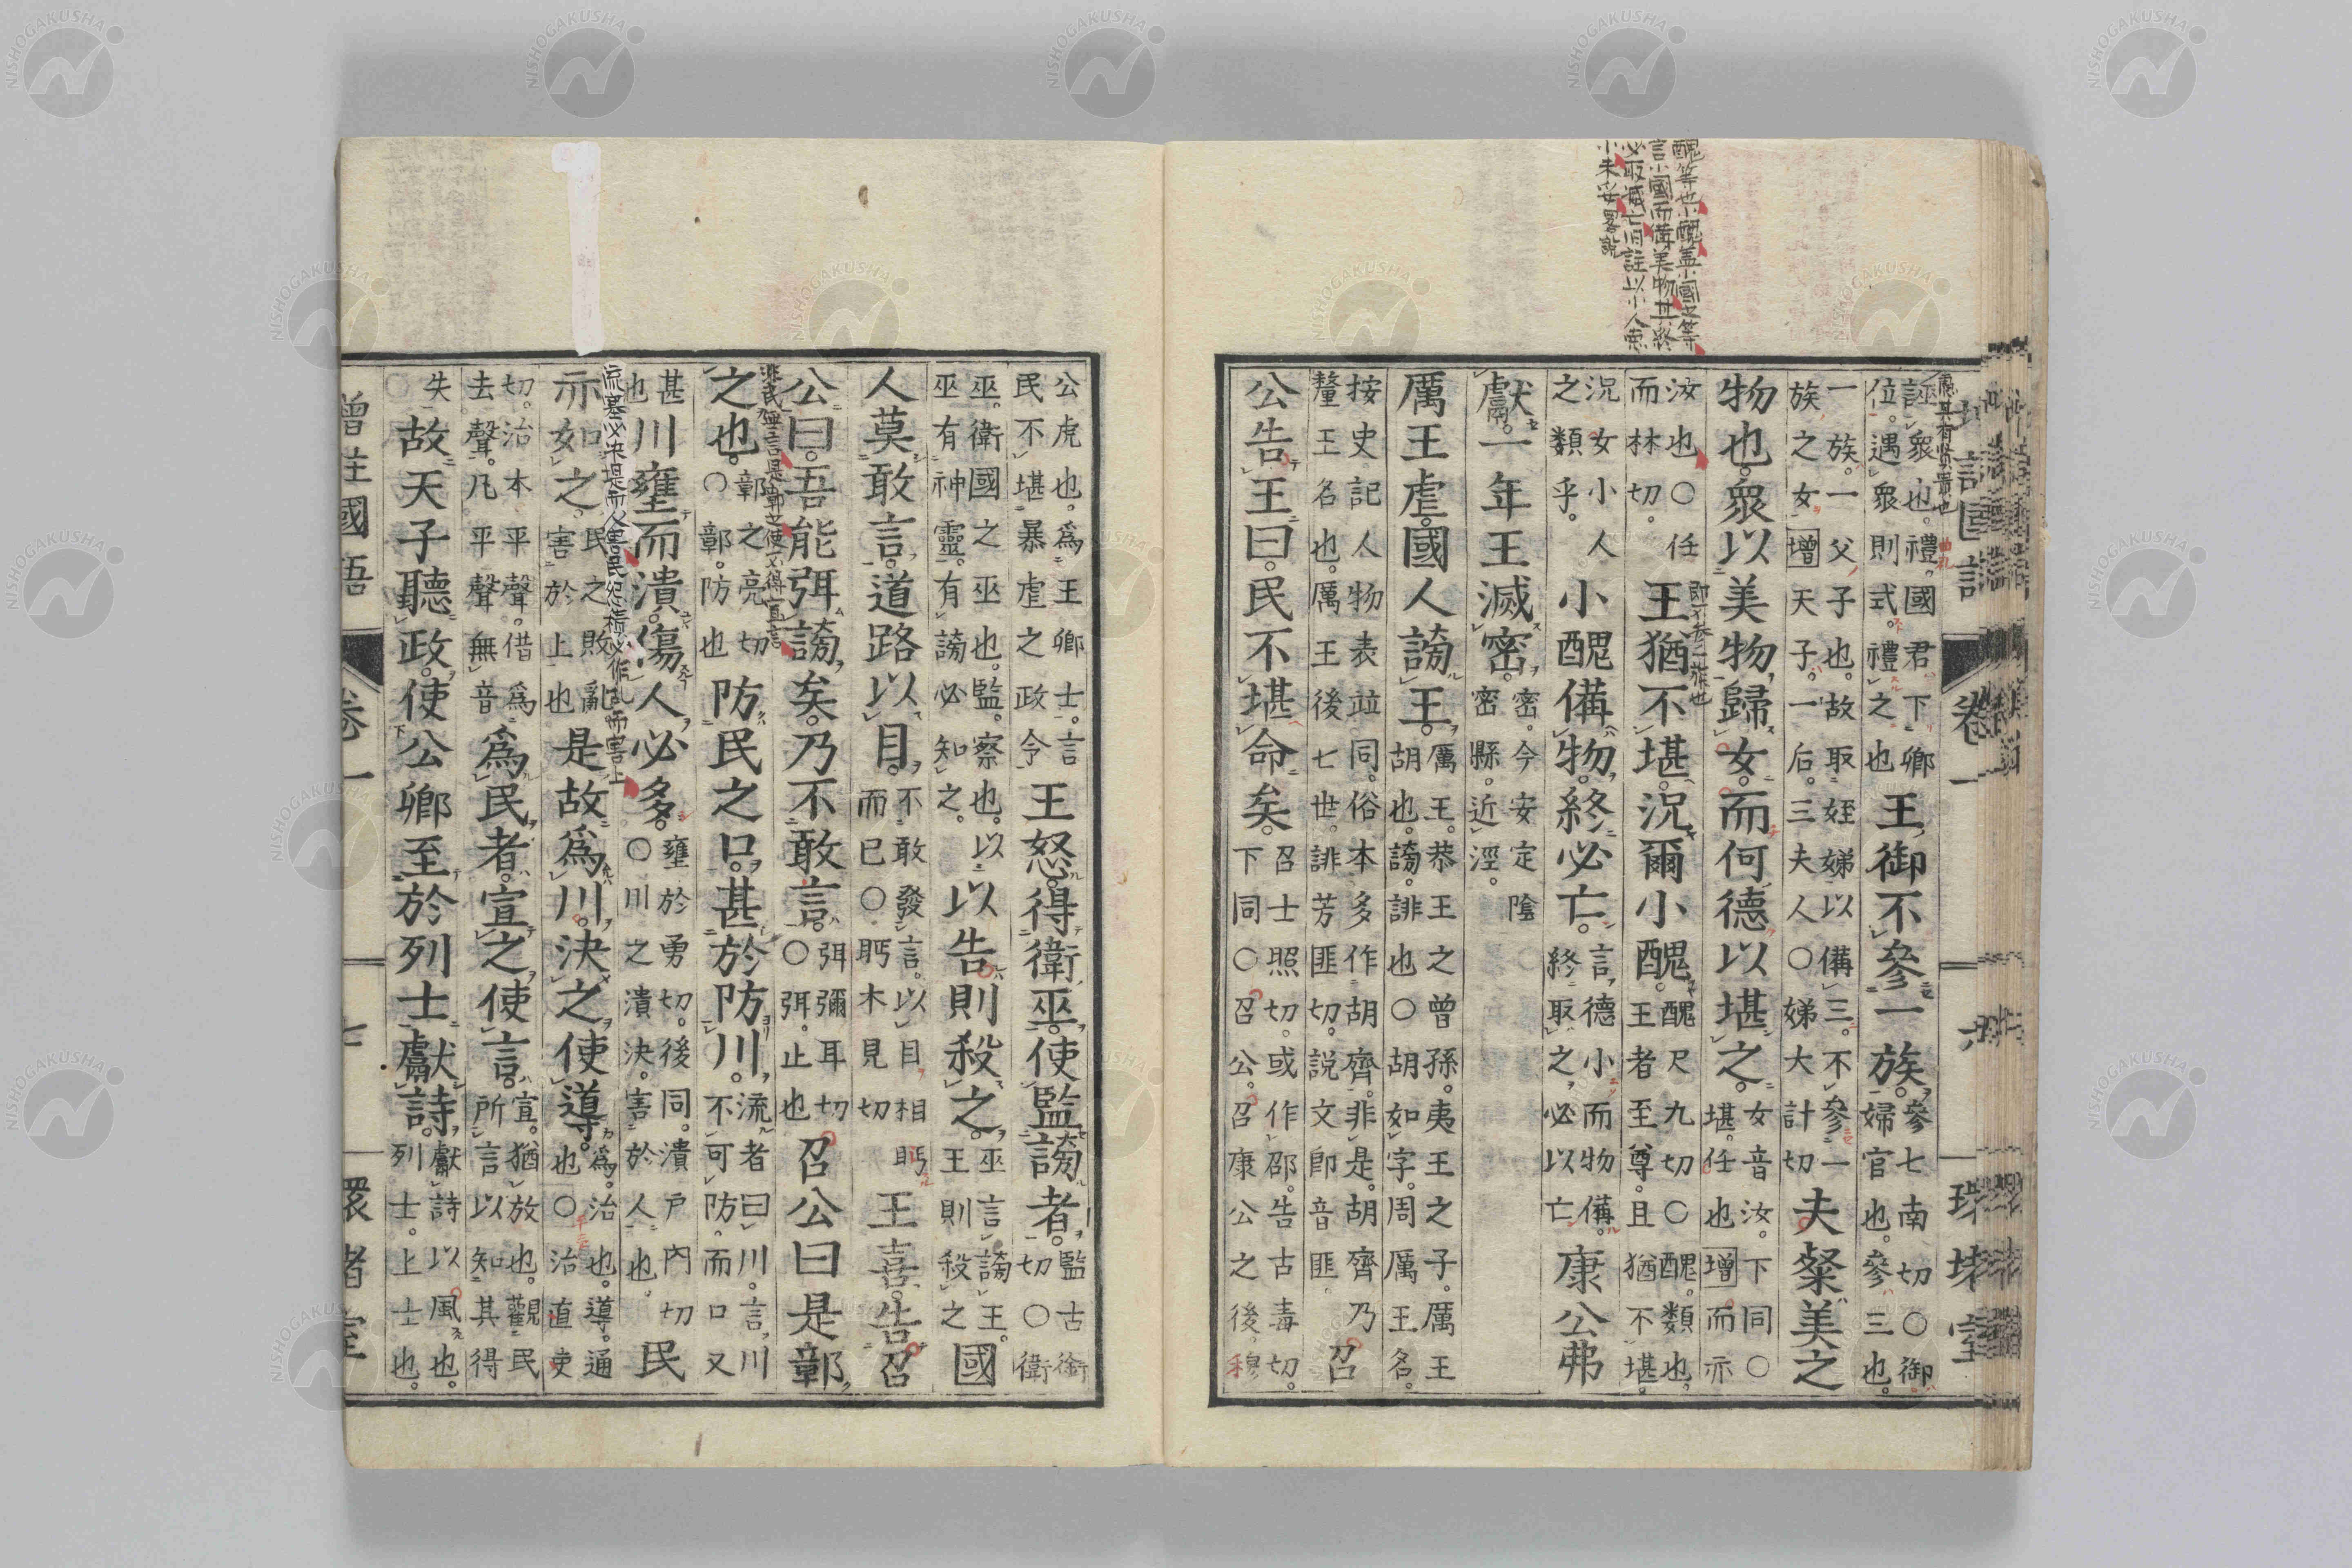 醜等也小醜蓋小國之等
言小國而備美物其終
必取滅亡旧註以小人
小未妥畧説
誣衆也。禮。國君下卿位。遇衆則式。禮之也王御不參一族。參七南切○御婦官也。參三也。
一族。一父子也。故取姪娣以備三。不參一族之女增天子。一后。三夫人○娣大計切夫粲美之
物也。衆以美物歸女。而何德以堪之。女音汝。下同○堪。任也增而亦
汝也○任而林切。王猶不堪。況爾小醜。醜尺九切○醜。類也。王者至尊。且猶不堪。
況女小人之類乎。小醜備物。終必亡。言德小而物備。終取之。必以亡康公弗
獻。一年王滅密。密。今安定陰密縣。近涇。
厲王虐。國人謗王。厲王。恭王之曾孫。夷王之子。厲王胡也。謗。誹也○胡如字。周厲王名。
按史記人物表竝同。俗本多作胡齊。非是。胡齊乃釐王名也。厲王後七世。誹芳匪切。説文卽音匪召
公告王曰。民不堪命矣。召士照切。或作邵。告古毒切。下同○召公。召康公之後。穆
卷一
六
公虎也。爲王卿士。言民不堪暴虐之政令王怒。得衛巫。使監謗者。監古銜切○衛
巫。衛國之巫也。監。察也。以巫有神靈。有謗必知之。以告則殺之。巫言謗王。王則殺之國
人莫敢言。道路以目。不敢發言。以目相眄而已○眄木見切王喜。告召
公曰。吾能弭謗矣。乃不敢言。弭彌耳切○弭。止也召公曰是鄣
非民無言是鄣之使不得宣言
之也。鄣之亮切○鄣。防也防民之口。甚於防川。流者曰川。言川不可防。而口又
甚也川壅而潰。傷人必多。壅於勇切。後同。潰戸內切○川之潰決。害於人也。民
亦如之。民之敗亂害於上也是故爲川。決之使導。爲。治也。導。通也○治直吏
切。治本平聲。借爲去聲。凡平聲無音爲民者。宣之使言。宣。猶放也。觀民所言。以知其得
失故天子聽政。使公卿至於列士獻詩。獻詩以風也。列士。上士也。
增註國語
卷一
七
環堵室
NISHOGAKUSHA